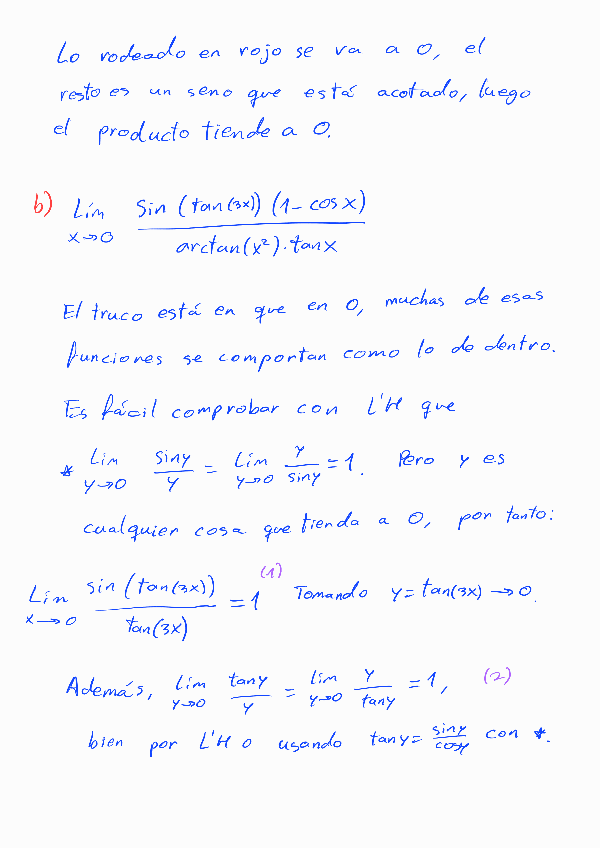 Lo rodeado en rojo se va a 0, el
resto es un seno que está acotado, luego
el producto tiende a 0.
b) Lím x→0 sin (tan(3x)) (1-cosx) / arctan(x²)·tanx
El truco está en que en 0, muchas de esas
funciones se comportan como lo de dentro.
Es fácil comprobar con L'H que
* Lím y→0 siny / y = Lím y→0 y / siny = 1. Pero y es
cualquier cosa que tienda a 0, por tanto:
Lím x→0 sin (tan(3x)) / tan(3x) = 1 (1) Tomando y = tan(3x) → 0.
Además, lím y→0 tany / y = lím y→0 y / tany = 1, (2)
bien por L'H o usando tany = siny / cosy con *.